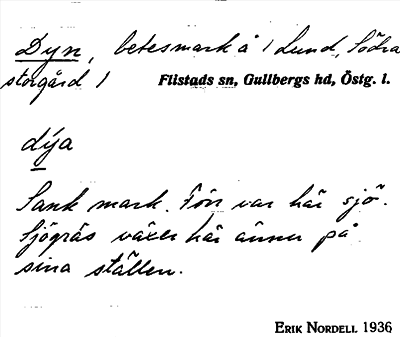 Dyn, betesmark å 1 Lund, Södra
storgård 1 Flistads sn, Gullbergs hd, Östg. l.
dýa
Sank mark. Förr var här sjö.
Sjögräs växer här ännu på
sina ställen.
ERIK NORDELL 1936